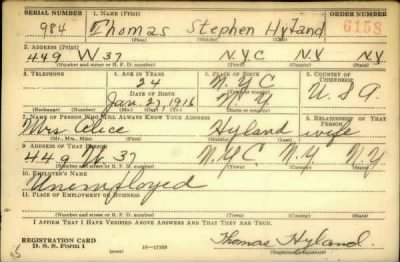 SERIAL NUMBER 1. NAME (Print) ORDER NUMBER
984 Thomas Stephen Hyland 6158
(First) (Middle) (Last)
2. ADDRESS (Print)
449 W 37 N.Y.C N.Y N.Y.
(Number and street or R. F. D. number) (Town) (County) (State)
3. TELEPHONE 4. AGE IN YEARS 5. PLACE OF BIRTH 6. COUNTRY OF CITIZENSHIP
24 N.Y.C U.S.A.
DATE OF BIRTH (Town or county)
Jan. 27, 1916 N.Y.
(Exchange) (Number) (Mo.) (Day) (Yr.) (State or country)
7. NAME OF PERSON WHO WILL ALWAYS KNOW YOUR ADDRESS 8. RELATIONSHIP OF THAT PERSON
Mrs Alice Hyland wife
(Mr., Mrs., Miss) (First) (Middle) (Last)
9. ADDRESS OF THAT PERSON
449 W. 37 N.Y.C N.Y N.Y
(Number and street or R. F. D. number) (Town) (County) (State)
10. EMPLOYER'S NAME
Unemployed
11. PLACE OF EMPLOYMENT OR BUSINESS
(Number and street or R. F. D. number) (Town) (County) (State)
I AFFIRM THAT I HAVE VERIFIED ABOVE ANSWERS AND THAT THEY ARE TRUE.
REGISTRATION CARD
D. S. S. Form 1 (over) Thomas Hyland.
(Registrant's signature)